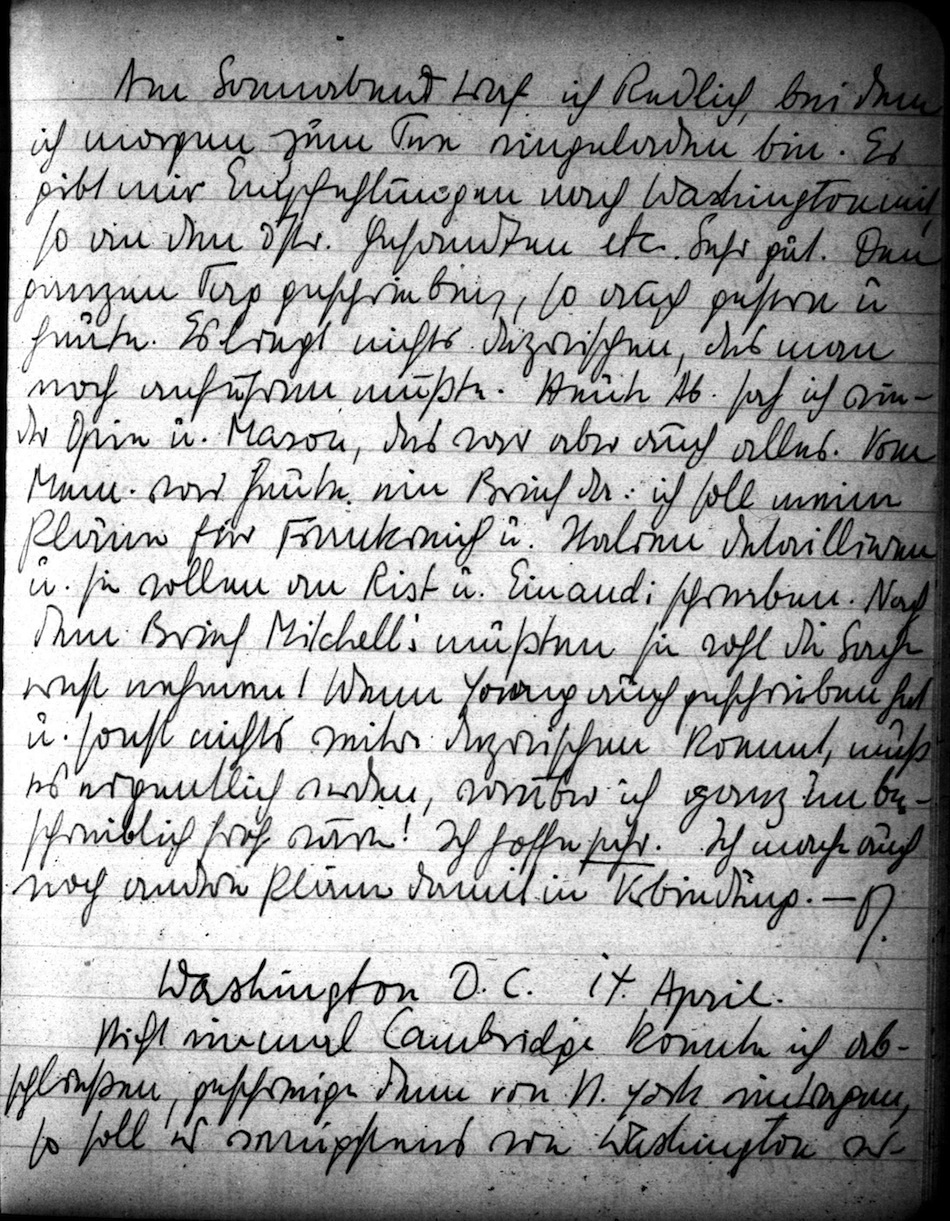 Am Sonnabend traf ich Redlich, bei dem
ich morgen zum Tee eingeladen bin. Er
gibt mir Empfehlungen nach Washington mit,
so an den öster. Gesandten etc. Sehr gut. Den
ganzen Tag geschrieben, so auch gestern u
heute. Es liegt nichts dazwischen, das man
noch anführen müßte. Heute Ab. sah ich wie-
der Opie u. Mason, das war aber auch alles. Vom
Mem. war heute ein Brief da: ich soll meine
Pläne für Frankreich u. Italien detaillieren
u. sie wollen an Rist u. Einaudi schreiben. Nach
dem Brief Mitchell's müßten sie wohl die Sache
ernst nehmen! Wenn Young auch geschrieben hat
u. sonst nichts weiter dazwischen kommt, muß
es eigentlich werden, worüber ich ganz unbe-
schreiblich froh wäre! Ich hoffe sehr. Ich mache auch
noch andere Pläne damit in Verbindung. —
Washington D. C. 14. April.
Nicht einmal Cambridge konnte ich ab-
schließen, geschweige denn von N. York eintragen,
so soll es wenigstens von Washington er-